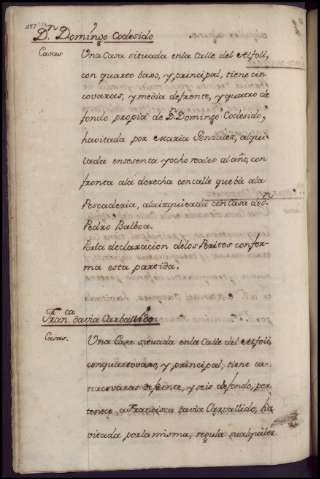 Dn. Domingo Codesido
Casas
Una Casa situada enla Calle del
con quarto baxo, y principal, tiene cin
co varas, y media de frente, y quatro de
fondo propia de Dn. Domingo Codesido,
havitada por Maria Gonzalez, alqui
lada ensesenta y ocho Rs. al año, con
fronta ala derecha con calle que bà ala
Pescaderia, alaizquierda con Casa de Dn.
Pedro Balboa.
La declaracion delos Peritos confor
ma esta partida.
Franca. Pavia Carballido
Casas.
Una Casa situada enla Calle del
conquartovaxo, y principal, tiene
varas de frente, y seis defondo, per
tenece a Francisca Pavia Carvallido, ha
vitada por la misma, regula su alquiler